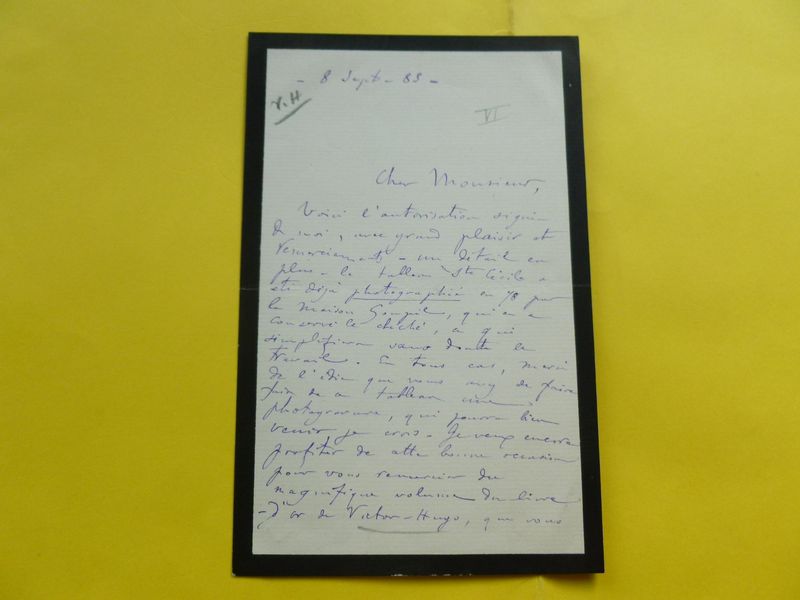 - 8 Sept - 83 -
V.H
VI
Cher Monsieur,
Voici l'autorisation signée
de moi, avec grand plaisir et
remerciements - un détail en
plus - le tableau Ste Cécile a
été déjà photographié en 78 par
la Maison Goupil, qui en a
conservé le cliché, ce qui
simplifiera sans doute le
travail. En tous cas, merci
de l'idée que vous avez de faire
faire de ce tableau une
photogravure, qui pourra bien
venir je crois. Je veux encore
profiter de cette bonne occasion
pour vous remercier du
magnifique volume du livre
d'or de Victor-Hugo, que vous